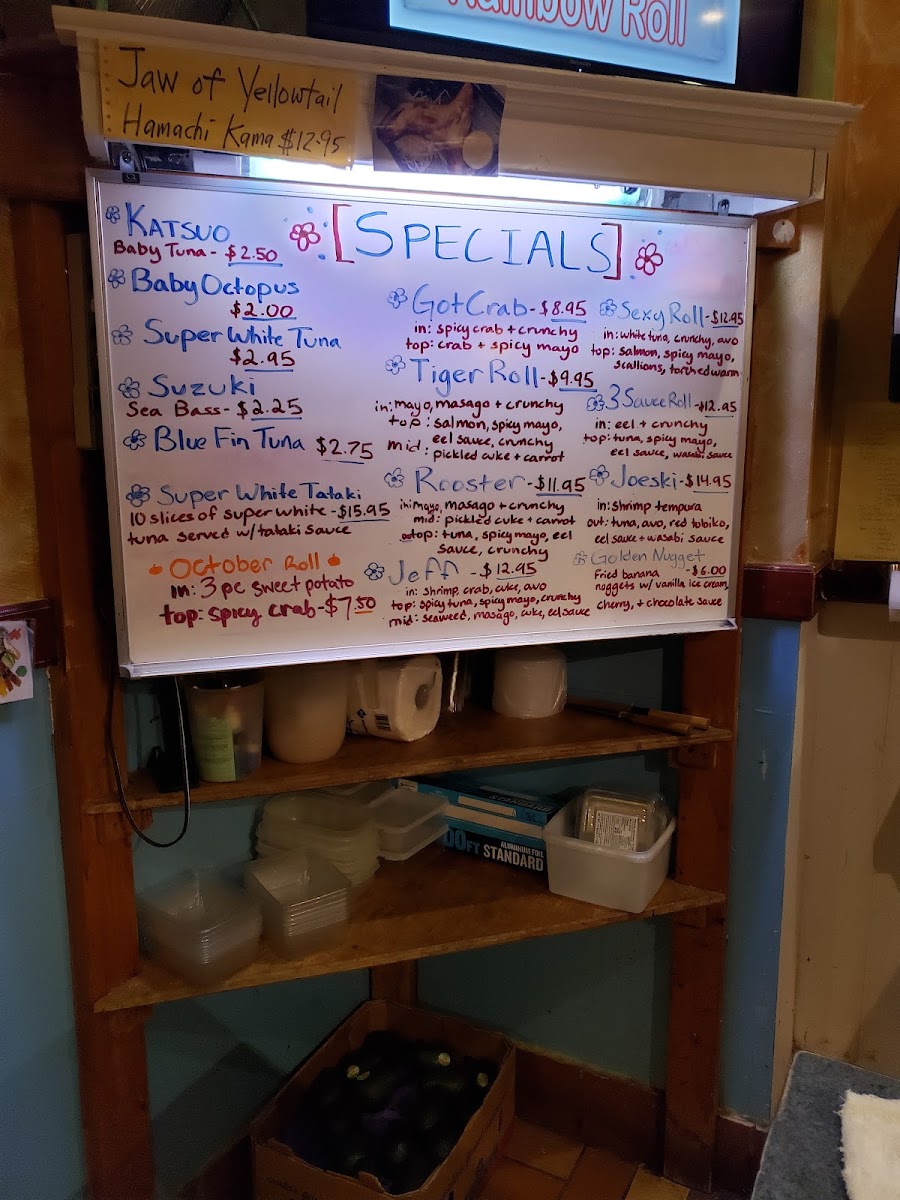 Rainbow Roll
Jaw of Yellowtail
Hamachi Kama $12.95
[SPECIALS]
KATSUO
Baby Tuna - $2.50
Baby Octopus
$2.00
Super White Tuna
$2.95
Suzuki
Sea Bass - $2.25
Blue Fin Tuna $2.75
Super White Tataki
10 slices of super white - $15.95
tuna served w/ tataki sauce
October Roll
in: 3 pc sweet potato
top: spicy crab - $7.50
Got Crab - $8.95
in: spicy crab + crunchy
top: crab + spicy mayo
Tiger Roll - $9.95
in: mayo, masago + crunchy
top: salmon, spicy mayo,
eel sauce, crunchy
mid: pickled cuke + carrot
Rooster - $11.95
in: mayo, masago + crunchy
mid: pickled cuke + carrot
top: tuna, spicy mayo, eel
sauce, crunchy
Jeff - $12.95
in: shrimp, crab, cuke, avo
top: spicy tuna, spicy mayo, crunchy
mid: seaweed, masago, cuke, eel sauce
Sexy Roll - $12.95
in: white tuna, crunchy, avo
top: salmon, spicy mayo,
scallions, torched warm
3 Sauce Roll - $12.95
in: eel + crunchy
top: tuna, spicy mayo,
eel sauce, wasabi sauce
Joeski - $14.95
in: shrimp tempura
out: tuna, avo, red tobiko,
eel sauce + wasabi sauce
Golden Nugget
Fried banana - $6.00
nuggets w/ vanilla ice cream,
cherry, + chocolate sauce
00FT STANDARD
ALUMINUM FOIL